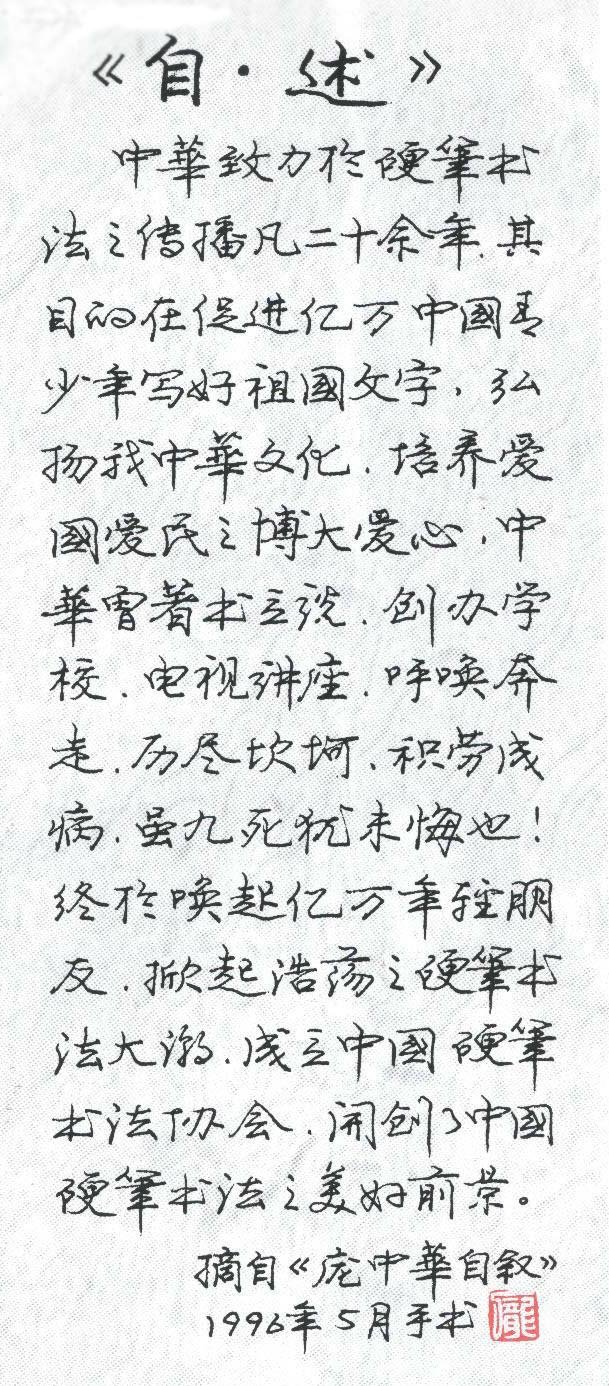 《自·述》
中華致力於硬筆书
法之传播凡二十余年.其
目的在促进亿万中國青
少年写好祖國文字，弘
扬我中華文化.培养爱
國爱民之博大爱心，中
華曾著书立说.创办学
校.电视讲座.呼唤奔
走.历尽坎坷、积劳成
病.虽九死犹未悔也！
终於唤起亿万年轻朋
友.掀起浩荡之硬筆书
法大潮.成立中國硬筆
书法协会.開创了中國
硬筆书法之美好前景。
摘自《庞中華自叙》
1996年5月手书
龐